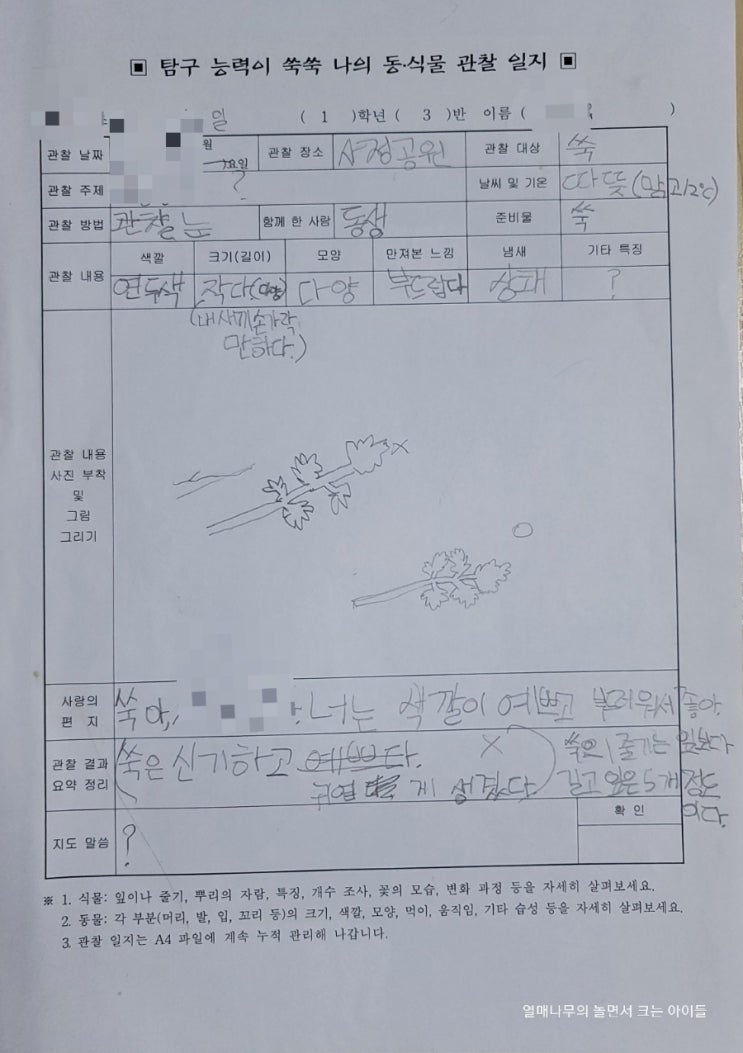 ▣ 탐구 능력이 쑥쑥 나의 동·식물 관찰 일지 ▣
일 ( 1 )학년 ( 3 )반 이름 ( )
관찰 날짜 월 요일 관찰 장소 사정공원 관찰 대상 쑥
관찰 주제 ? 날씨 및 기온 따뜻(맑고12℃)
관찰 방법 관찰, 눈 함께 한 사람 동생 준비물 쑥
관찰 내용 색깔 크기(길이) 모양 만져본 느낌 냄새 기타 특징
연두색 작다 다양 부드럽다 상쾌 ?
(내새끼손가락
만하다.)
관찰 내용
사진 부착
및
그림
그리기
사랑의
편 지
쑥아, 너는 색깔이 예쁘고 부러워서 좋아.
관찰 결과
요약 정리
쑥은 신기하고 예쁘다.
귀엽 게 생겼다
쑥은 줄기는 잎보다
길고 잎은 5개 정도
이다.
지도 말씀 ? 확 인
※ 1. 식물: 잎이나 줄기, 뿌리의 자람, 특징, 개수 조사, 꽃의 모습, 변화 과정 등을 자세히 살펴보세요.
2. 동물: 각 부분(머리, 발, 입, 꼬리 등)의 크기, 색깔, 모양, 먹이, 움직임, 기타 습성 등을 자세히 살펴보세요.
3. 관찰 일지는 A4 파일에 계속 누적 관리해 나갑니다.
열매나무의 놀면서 크는 아이들